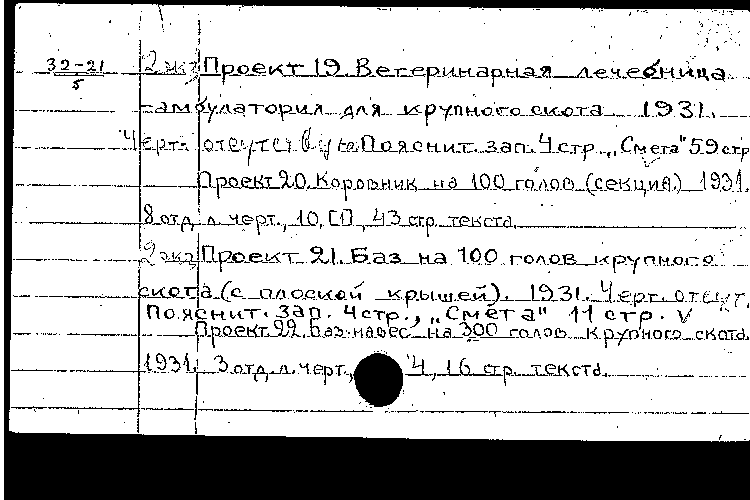 32-21 2 экз Проект 19. Ветеринарная лечебница
5
-амбулатория для крупного скота 1931.
Черт. отсутствую Пояснит. зап. 4 стр. „Смета" 59 стр
Проект 20. Коровник на 100 голов (секция.) 1931.
8 отд. л. черт., 10, [], 43 стр. текста.
2 экз Проект 21. Баз на 100 голов крупного
скота (с плоской крышей). 1931. Черт. отсут.
Пояснит. зап. 4 стр., „Смета" 11 стр. V
Проект 22. Баз-навес на 300 голов крупного скота.
1931. 3 отд. л. черт., 4, 16 стр. текста.